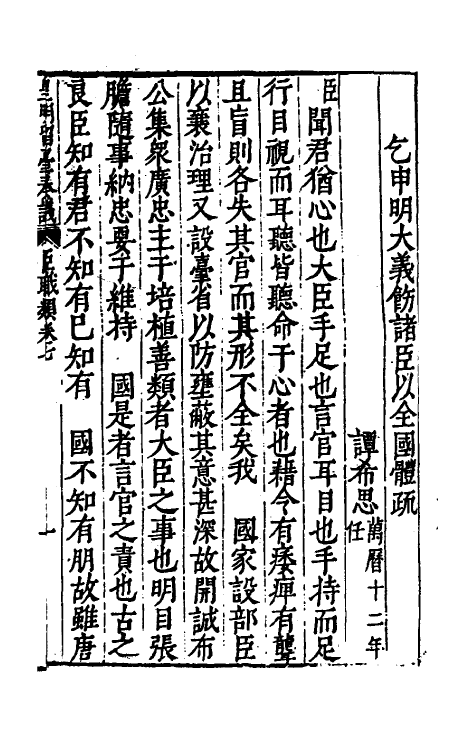 乞申明大義飭諸臣以全國體疏
譚希思萬曆十二年任
臣聞君猶心也大臣手足也言官耳目也手持而足
行目視而耳聽皆聽命于心者也藉今有痿痺有聾
且盲則各失其官而其形不全矣我 國家設部臣
以襄治理又設臺省以防壅蔽其意甚深故開誠布
公集衆廣忠主于培植善類者大臣之事也明目張
膽隨事納忠要于維持 國是者言官之責也古之
良臣知有君不知有已知有 國不知有朋故雖唐
皇明留臺奏議 臣職類卷七 一